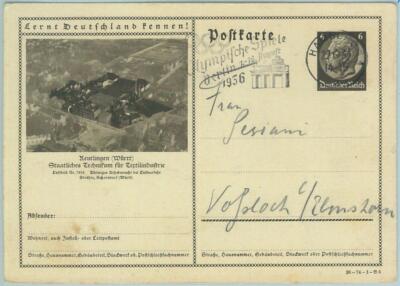 Lernt Deutschland kennen!
Postkarte
6 6
Olympische Spiele
Berlin
1936
Deutsches Reich
Reutlingen (Württ)
Staatliches Technikum für Textilindustrie
Frau
Voßloch b/Elmshorn
Absender:
Wohnort, auch Zustell- oder Leitpostamt
Straße, Hausnummer, Gebäudeteil, Stockwerk od. Postschließfachnummer
Straße, Hausnummer, Gebäudeteil, Stockwerk oder Postschließfachnummer